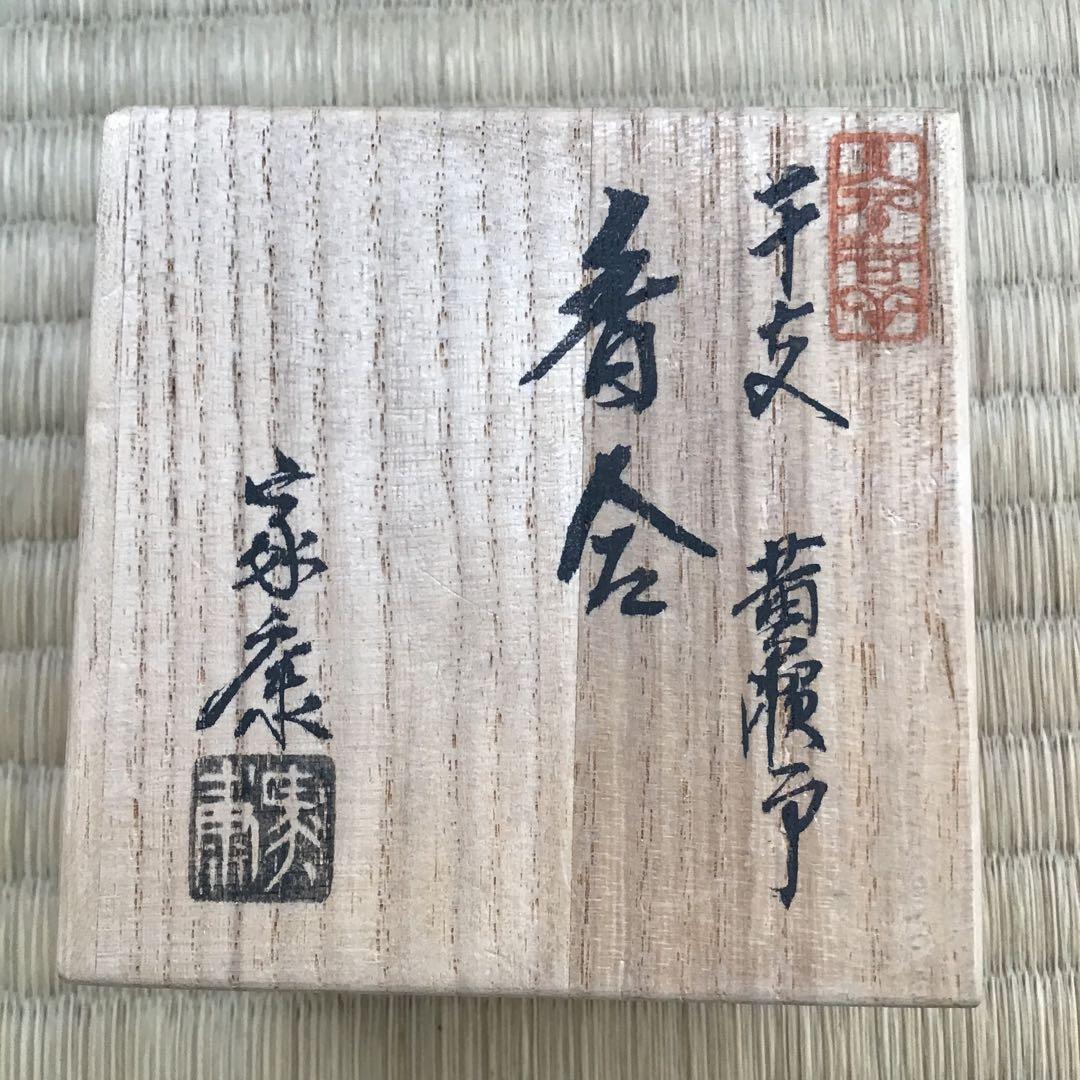 干支 黄瀬戸
香合
家康